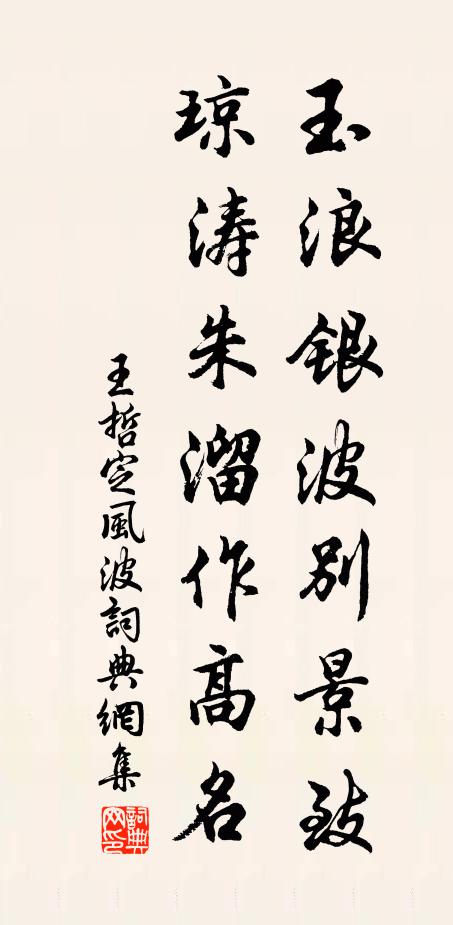 玉浪銀波別景致
琼涛朱溜作高名
王哲定風波詞典網集
詞典网印